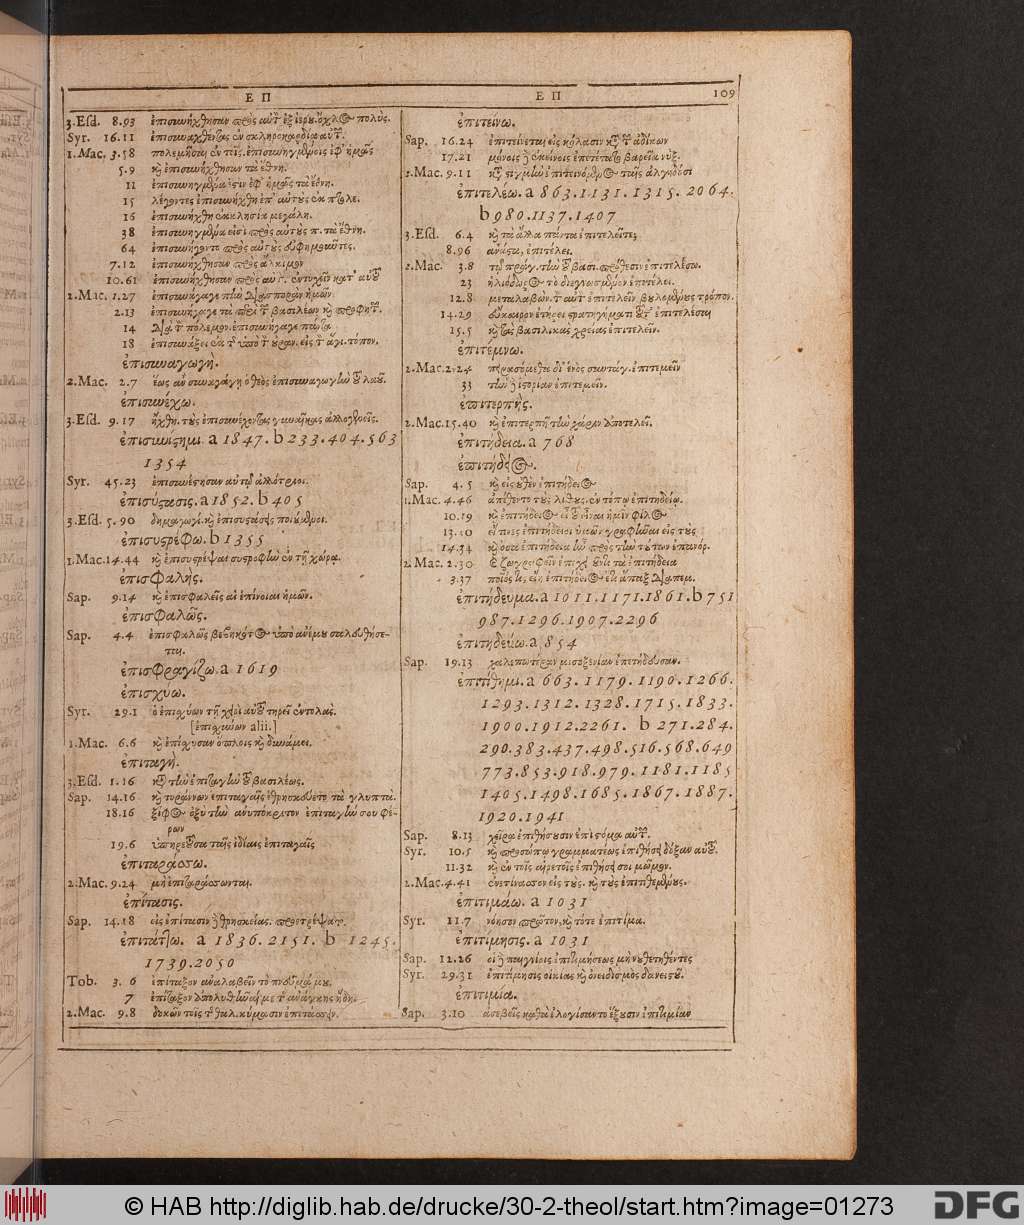 Ε Π
Ε Π
109
3.Esd. 8.93 ἐπισυνήχθησαν πρὸς αὐτ ἐξ ἱερου. ὄχλος πολύς.
Syr. 16.11 ἐπισυναχθέντας ἐν σκληροκαρδίᾳ αὐτ.
1.Mac. 3.58 πολεμῆσαι ἐν τοῖς ἐπισυνηγμένοις ἐφ' ἡμᾶς
5.9 καὶ ἐπισυνήχθησαν τὰ ἔθνη.
11 ἐπισυνηγμένα ἐστιν ἐφ' ἡμᾶς τὰ ἔθνη.
15 λέγοντες ἐπισυνήχθη ἐπ' αὐτοὺς ἐκ πτολε.
16 ἐπισυνήχθη ἐκκλησία μεγάλη.
38 ἐπισυνηγμένα εἰσι πρὸς αὐτους π. τὰ ἔθνη.
64 ἐπισυνήγοντο πρὸς αὐτοὺς εὐφημοῦντες.
7.12 ἐπισυνήχθησαν πρὸς ἄλκιμον
10.61 ἐπισυνήχθησαν πρὸς αὐτ. ἐντυχεῖν κατ' αὐτοῦ
2.Mac. 1.27 ἐπισυνάγαγε τὴν διασπορὰν ἡμῶν.
2.13 ἐπισυνήγαγε τὰ περὶ τ βασιλέων καὶ προφητ.
14 διὰ τ πόλεμον. ἐπισυνήγαγε πάντα
18 ἐπισυνάξει ἐκ τ ὑπὸ τ ουραν. εἰς τ ἅγι. τόπον.
ἐπισυναγωγή.
2.Mac. 2.7 ἕως αν συναγάγη ὁ θεὸς ἐπισυναγωγὴν τοῦ λαοῦ.
ἐπισυνέχω.
3.Esd. 9.17 ἤχθη. τοὺς ἐπισυνέχοντας γυναῖκας ἀλλογενεῖς.
ἐπισυνίστημι. a 1847. b 233.404.563
1354
Syr. 45.23 ἐπισυνέστησαν αυτῷ ἀλλότριοι.
ἐπισύστασις. a 1852. b 405
3.Esd. 5.90 δημαγωγί. καὶ ἐπισυστάσεις ποιούμενοι.
ἐπισυστρέφω. b 1355
1.Mac. 14.44 καὶ ἐπισυστρέψαι συστροφὴν ἐν τῇ χώρᾳ.
ἐπισφαλής.
Sap. 9.14 καὶ ἐπισφαλεῖς αἱ ἐπίνοιαι ἡμῶν.
ἐπισφαλῶς.
Sap. 4.4 ἐπισφαλῶς βεβηκότος ὑπὸ ανέμου σαλευθήσε-
ται.
ἐπισφραγίζω. a 1619
ἐπισχύω.
Syr. 29.1 ὁ ἐπισχύων τῇ χειρὶ αὐτοῦ τηρεῖ ἐντολάς.
[ἐπιχαύων alii.]
1.Mac. 6.6 καὶ ἐπίσχυσαν ὅπλοις καὶ δυνάμει.
ἐπιταγὴ.
3.Esd. 1.16 κατὰ τὴν ἐπιταγὴν τοῦ βασιλέως.
Sap. 14.16 καὶ τυράννων ἐπιταγαῖς ἐθρησκεύετο τὰ γλυπτά.
18.16 ξίφος ὀξὺ τὴν ανυπόκριτον ἐπιταγήν σου φέ-
ρων
19.6 ὑπηρετοῦσα ταῖς ἰδίαις ἐπιταγαῖς
ἐπιταράσσω.
2.Mac. 9.24 μὴ ἐπιταράσσωνται.
ἐπίτασις.
Sap. 14.18 εἰς ἐπίτασιν θρησκείας. προετρέψατο.
ἐπιτάττω. a 1836.2151. b 1245.
1739.2050
Tob. 3.6 ἐπίταξον ἀναλαβεῖν τὸ πνεῦμά μου.
7 ἐπίταξον ἀπολυθῆναί με τ ἀνάγκης ἤδη.
2.Mac. 9.8 δοκῶν τοῖς τ θαλ. κύμασιν ἐπιτάσσειν.
ἐπιτείνω.
Sap. 16.24 ἐπιτείνεται εἰς κόλασιν κατὰ τ ἀδίκων
17.21 μόνοις ἐκείνοις ἐπετέτατο βαρεῖα νύξ.
2.Mac. 9.11 κατὰ στιγμὴν ἐπιτεινόμενος ταῖς ἀλγηδόσι
ἐπιτελέω. a 863.1131.1315.2064.
b 980.1137.1407
3.Esd. 6.4 καὶ τὰ ἄλλα πάντα ἐπιτελεῖτε;
8.96 ανάστα, ἐπιτέλει.
2.Mac. 3.8 τῷ πράγ. τὴν τοῦ βασι. πρόθεσιν ἐπιτελέσω.
23 ἡλιόδωρος τὸ διεγνωσμένον ἐπιτέλει.
12.8 μεταλαβὼν. τ αὐτ ἐπιτελεῖν βουλομένους τρόπον.
14.29 εὔκαιρον ἐτήρει στρατηγήματι τοῦτ ἐπιτελέσαι
15.5 καὶ τὰς βασιλικὰς χρείας ἐπιτελεῖν.
ἐπιτέμνω.
2.Mac. 2.24 πειρασόμεθα δι' ἑνὸς συντάγ. ἐπιτεμεῖν
33 τὴν ἱστορίαν ἐπιτεμεῖν.
ἐπιτερπὴς.
2.Mac. 15.40 καὶ ἐπιτερπῆ τὴν χάριν ἀποτελεῖ.
ἐπιτήδεια. a 768
ἐπιτήδειος.
Sap. 4.5 καὶ εἰς οὐθὲν ἐπιτήδειος
1.Mac. 4.46 ἀπέθεντο τοὺς λίθους. ἐν τόπῳ ἐπιτηδείῳ.
10.19 καὶ ἐπιτήδειος εἶ τοῦ εἶναι ἡμῖν φίλος
13.40 εἴ τινες ἐπιτήδειοι ὑμῶν γραφῆναι εἰς τοὺς
14.34 καὶ ὅσα ἐπιτήδεια ἦν πρὸς τὴν τούτων ἐπανόρ.
2.Mac. 2.30 ζωγραφεῖν ἐπιχ τὰ ἐπιτήδεια
3.37 ποῖός τις εἴη ἐπιτήδειος ἔτι ἅπαξ διαπεμ.
ἐπιτήδευμα. a 1011.1171.1861. b 751
987.1296.1907.2296
ἐπιτηδεύω. a 854
Sap. 19.13 χαλεπωτέραν μισοξενίαν ἐπετήδευσαν.
ἐπιτίθημι. a 663.1179.1190.1266.
1293.1312.1328.1715.1833.
1900.1912.2261. b 271.284.
290.383.437.498.516.568.649
773.853.918.979.1181.1185
1405.1498.1685.1867.1887.
1920.1941
Sap. 8.13 χεῖρα ἐπιθήσουσιν ἐπὶ στόμα αὐτ.
Syr. 10.5 καὶ προσώπῳ γραμματέως ἐπιθήσει δόξαν αὐτοῦ.
11.32 καὶ ἐν τοῖς αἱρετοῖς ἐπιθήσει σοι μῶμον.
2.Mac. 4.41 ἐνετίνασσον εἰς τοὺς. καὶ τους ἐπιτιθεμένους.
ἐπιτιμάω. a 1031
Syr. 11.7 νόησον πρῶτον, καὶ τότε ἐπιτίμα.
ἐπιτίμησις. a 1031
Sap. 12.26 οἱ παιγνίοις ἐπιτιμήσεως μὴ νουθετηθέντες
Syr. 29.31 ἐπιτίμησις οἰκίας καὶ ὀνειδισμὸς δανειστοῦ.
ἐπιτιμία.
Sap. 3.10 ἀσεβεῖς καθὰ ἐλογίσαντο ἕξουσιν ἐπιτιμίαν
© HAB http://diglib.hab.de/drucke/30-2-theol/start.htm?image=01273
DFG